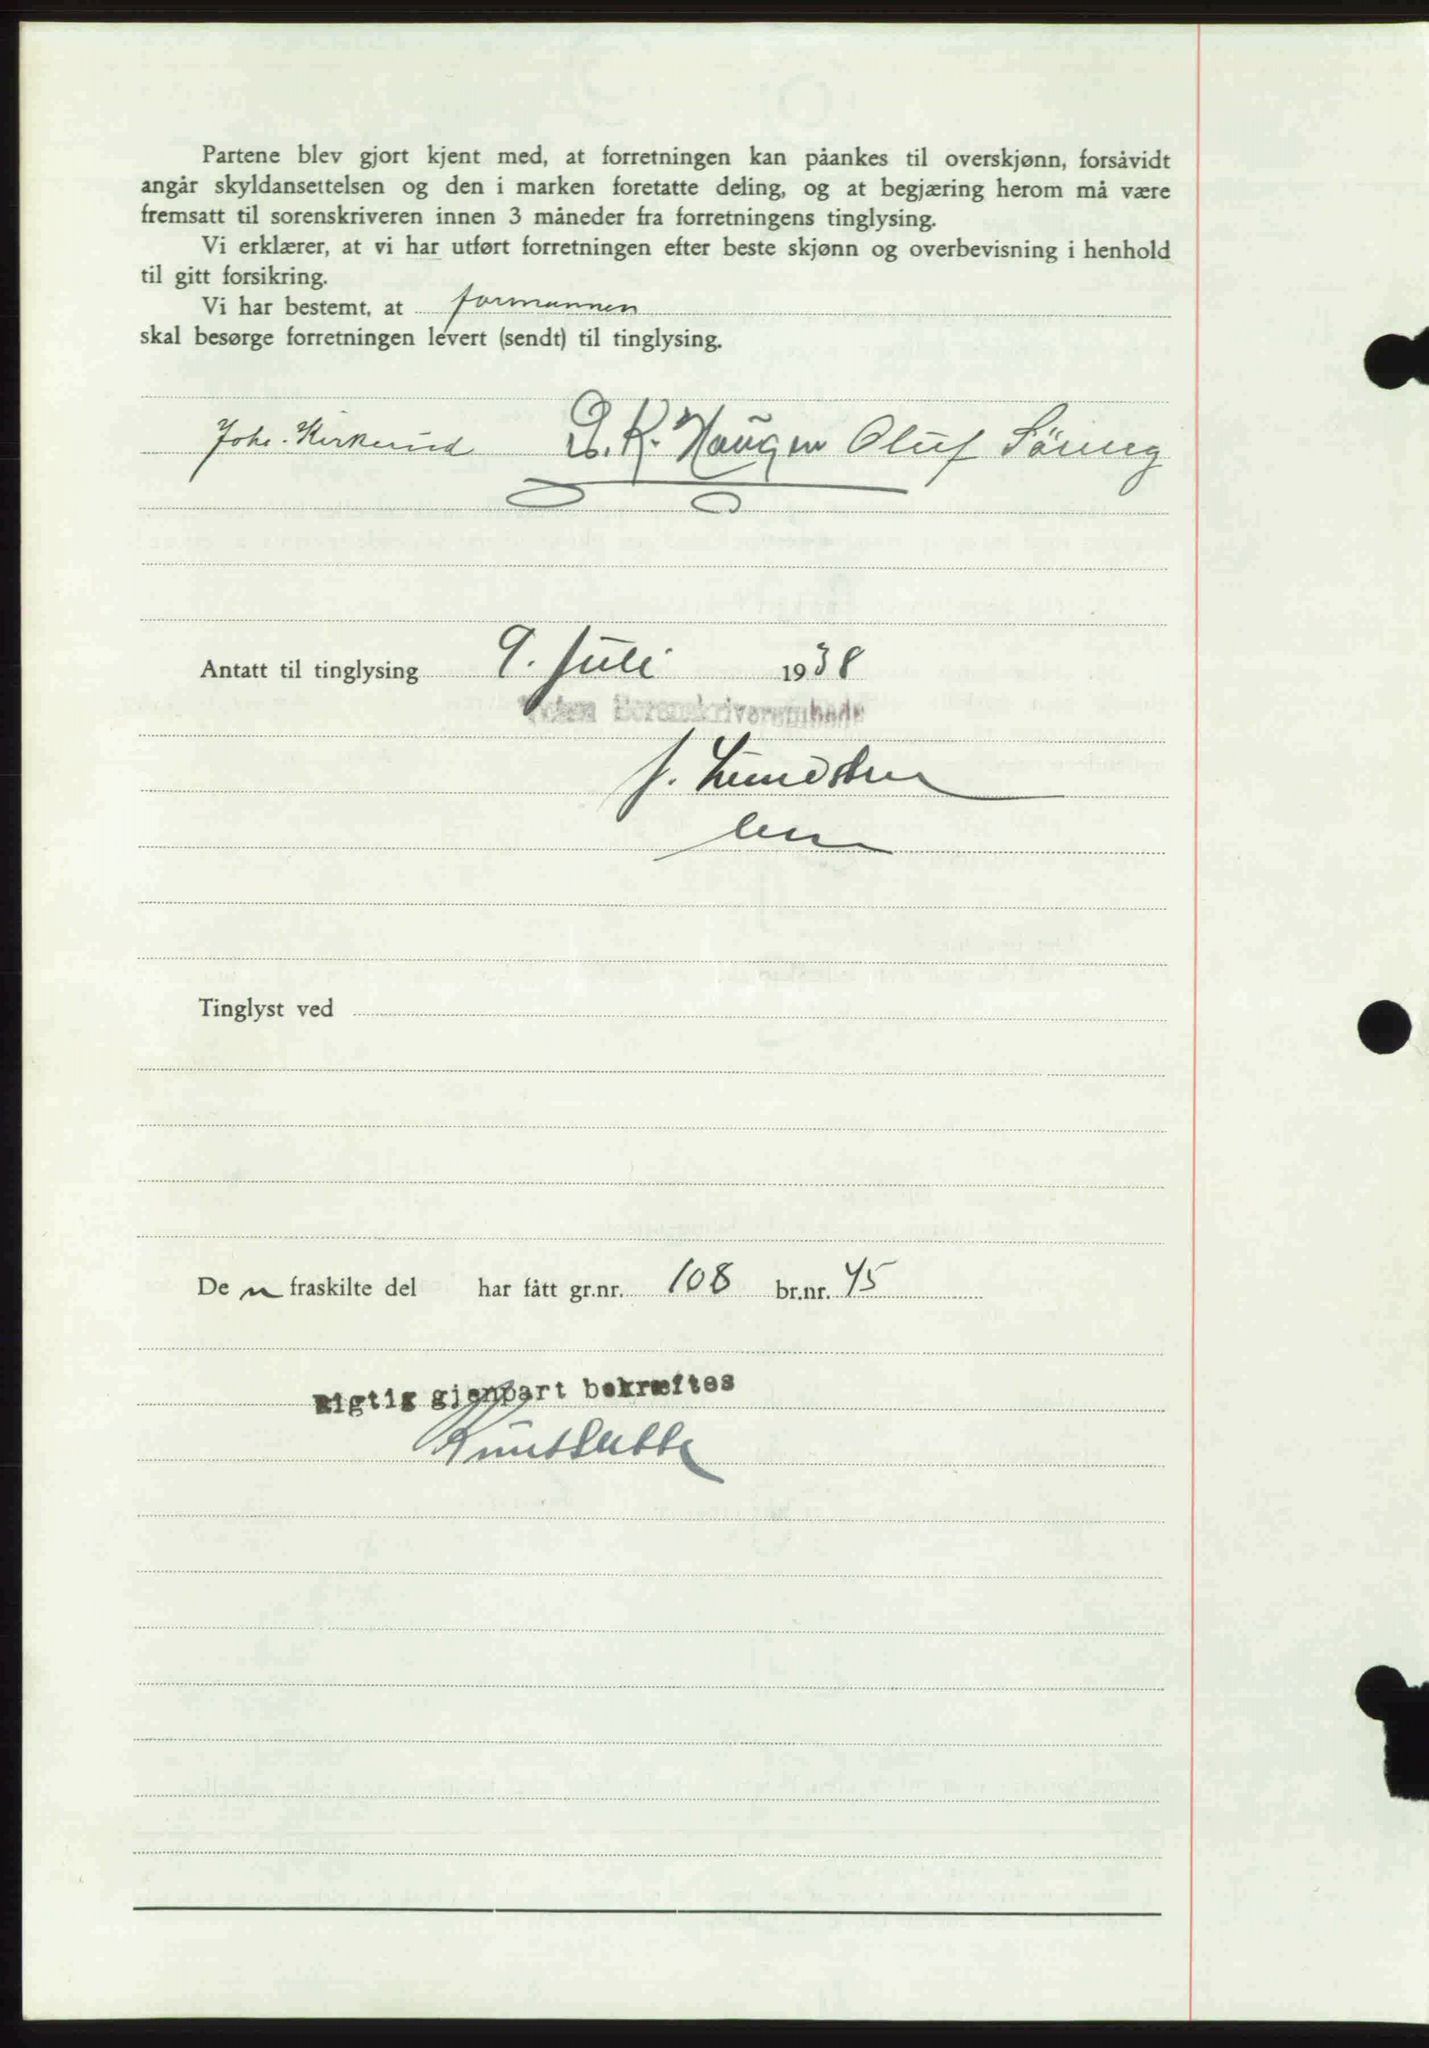 Partene blev gjort kjent med, at forretningen kan påankes til overskjønn, forsåvidt
angår skyldansettelsen og den i marken foretatte deling, og at begjæring herom må være
fremsatt til sorenskriveren innen 3 måneder fra forretningens tinglysing.
Vi erklærer, at vi har utført forretningen efter beste skjønn og overbevisning i henhold
til gitt forsikring.
Vi har bestemt, at formannen
skal besørge forretningen levert (sendt) til tinglysing.
Johs. Kirkerud O. K. Haugen Oluf Söring
Antatt til tinglysing 9. Juli 1938
Toten Sorenskriverembede
J. Lundsten
De n fraskilte del har fått gr.nr. 108 br.nr. 45
Tinglyst ved
Rigtig gjenpart bekræftes